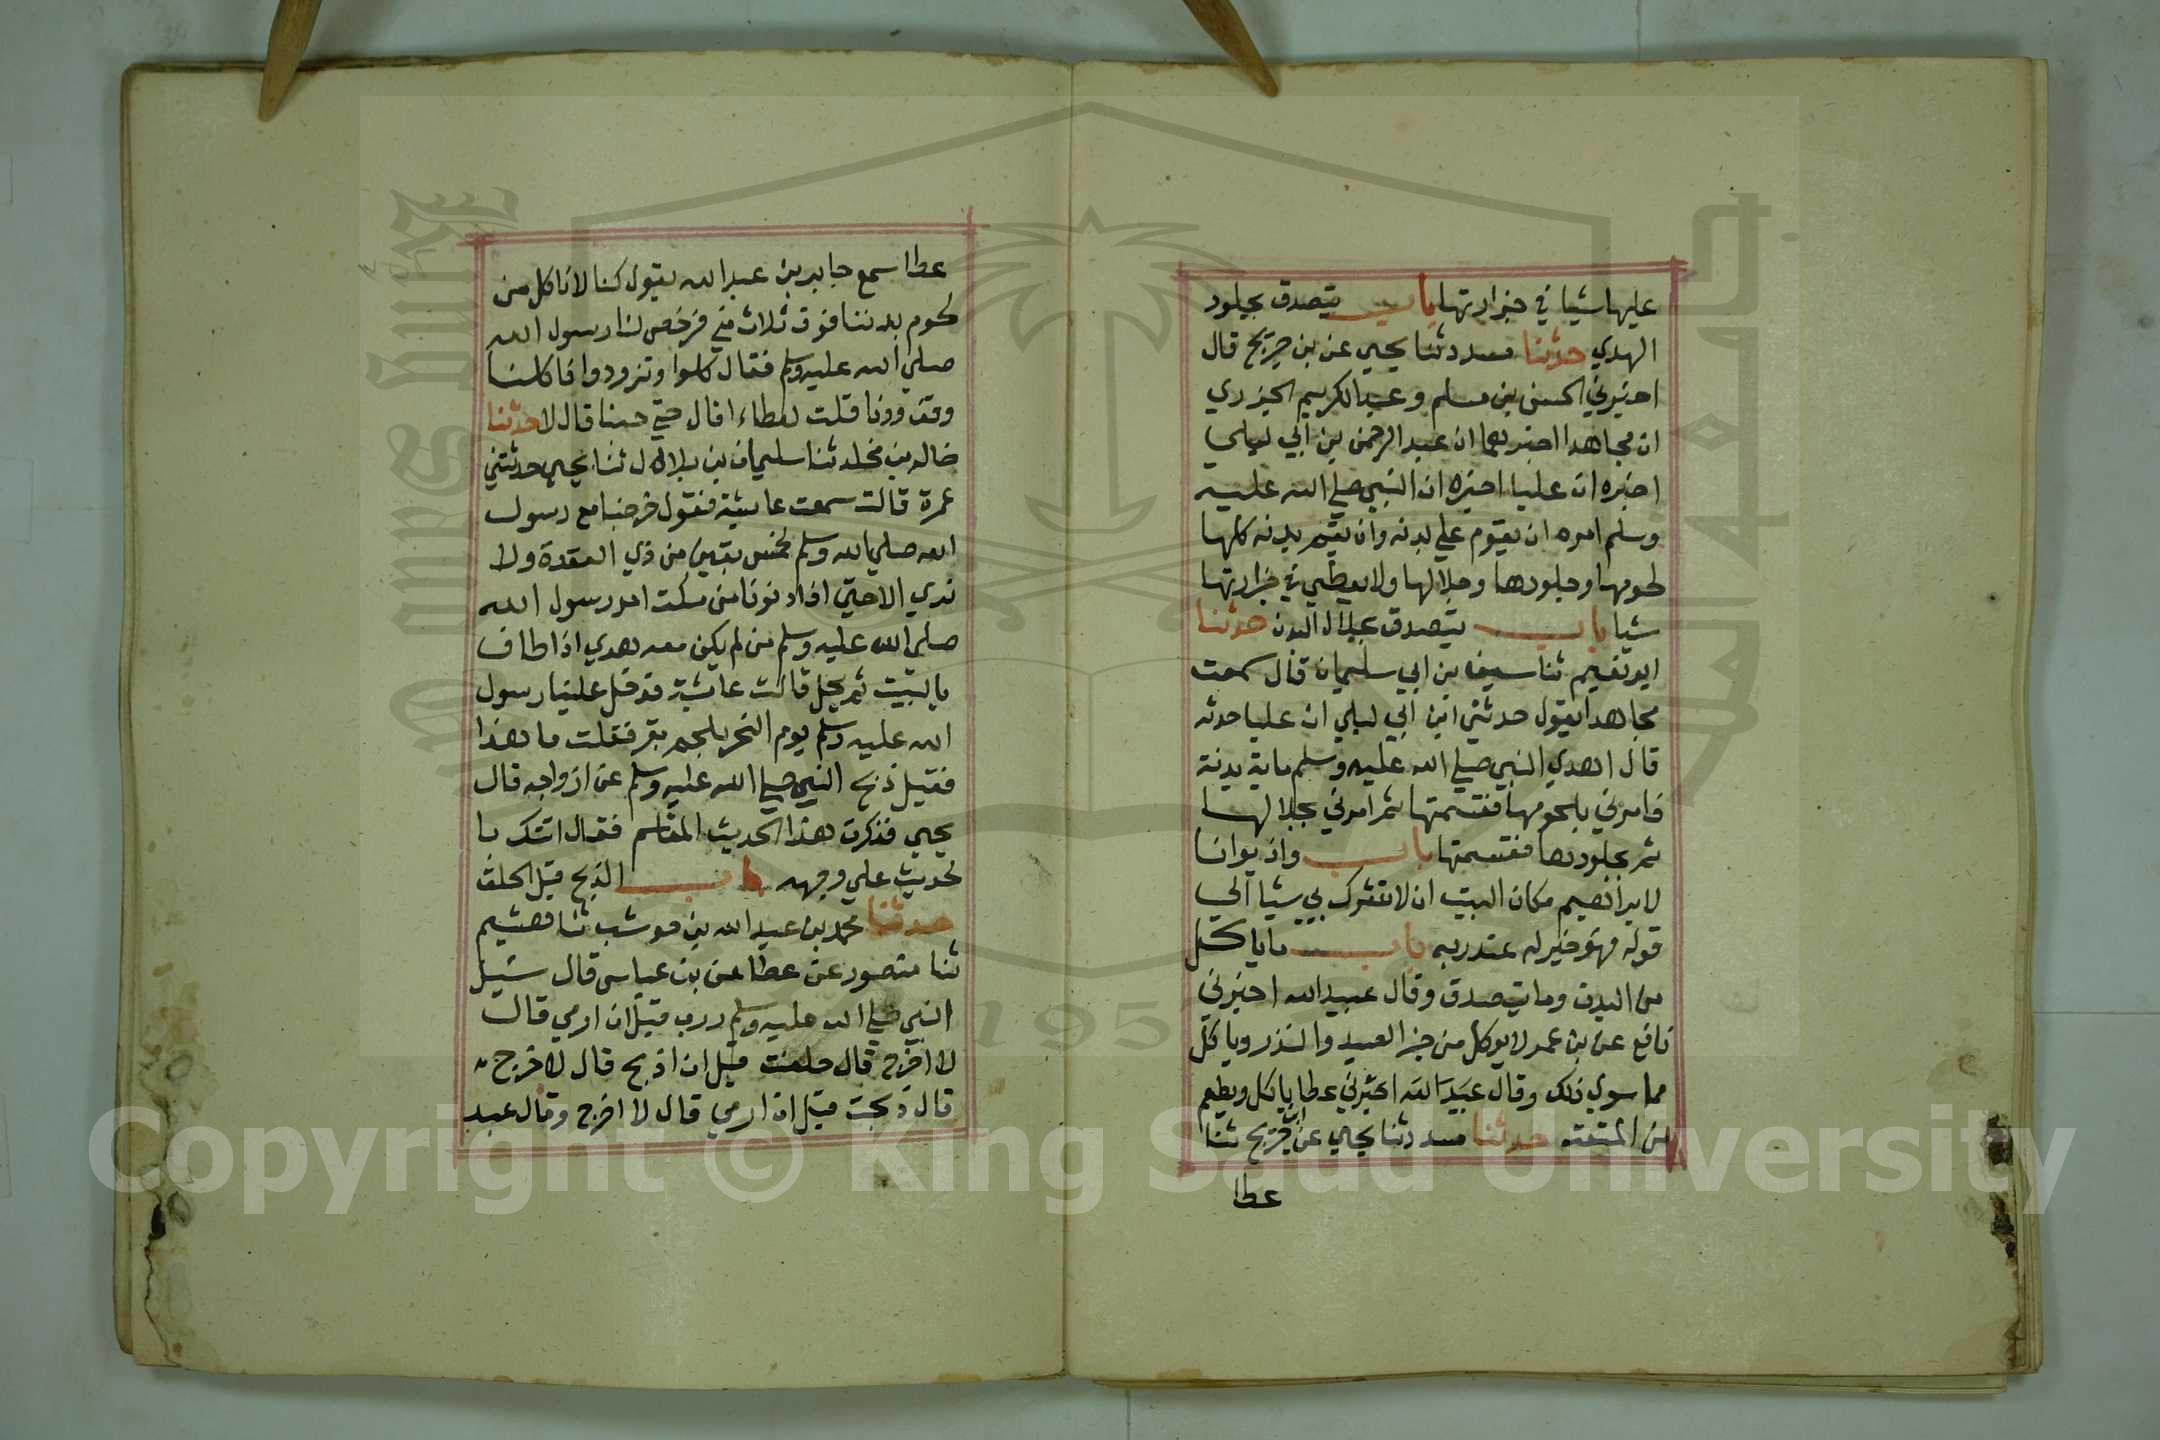 عليها شيا في جزارتها باب يتصدق بجلود
الهدي حدثنا مسدد ثنا يحيي عن بن جريج قال
اخبرني الحسن بن مسلم وعبد الكريم الجزري
ان مجاهدا اخبرهما ان عبد الرحمن بن ابي ليلي
اخبره ان عليا اخبره ان النبي صلي الله عليه
وسلم امره ان يقوم علي بدنه وان يقسم بدنه كلها
لحومها وجلودها وجلالها ولا يعطي في جزارتها
شيا باب يتصدق بجلال البدن حدثنا
ابو نعيم ثنا سيف بن ابي سليمان قال سمعت
مجاهدا يقول حدثني ابن ابي ليلي ان عليا حدثه
قال اهدي النبي صلي الله عليه وسلم ماية بدنة
فامرني بلحومها فقسمتها ثم امرني بجلالها
ثم بجلودها فقسمتها باب واذ بوانا
لابراهيم مكان البيت ان لا تشرك بي شيا الي
قوله فهو خير له عند ربه باب ما ياكل
من البدن وما يتصدق وقال عبيد الله اخبرني
نافع عن بن عمر لا يوكل من جزا الصيد والنذر وياكل
مما سوي ذلك وقال عبيد الله اخبرني عطا ياكل ويطعم
من المتعته حدثنا مسدد ثنا يحيي عن ابن جريج ثنا
عطا
عطا سمع جابر بن عبد الله يقول كنا لا ناكل من
لحوم بدننا فوق ثلاث مني فرخص لنا رسول الله
صلي الله عليه وسلم فقال كلوا وتزودوا فاكلنا
وتزودنا قلت لعطاء اقال حتي جينا قال لا حدثنا
خالد بن مخلد ثنا سليمان بن بلال ثنا يحيي حدثتني
عمرة قالت سمعت عايشة تقول خرجنا مع رسول
الله صلي الله وسلم لخمس بقين من ذي القعدة ولا
نري الا حتي اذا دنونا من مكت امر رسول الله
صلي الله عليه وسلم من لم يكن معه هدي اذا طاف
بالبيت ثم يحل قالت عايشة فدخل علينا رسول
الله عليه وسلم يوم النحر بلحم بقر فقلت ما هذا
فقيل ذبح النبي صلي الله عليه وسلم عن ازواجه قال
يحيي فذكرت هذا الحديث للقاسم فقال اتتك با
لحديث علي وجهه باب الذبح قبل الحلق
حدثنا محمد بن عبد الله بن حوشب ثنا هشيم
ثنا منصور عن عطا عن بن عباس قال سئيل
النبي صلي الله عليه وسلم قبل ان ارمي قال
لا اخرج قال حلقت قبل ان اذبح قال لا خرج
قال ذبحت قبل ان ارمي قال لا اخرج وقال عبد
Copyright © King Saud University
1957